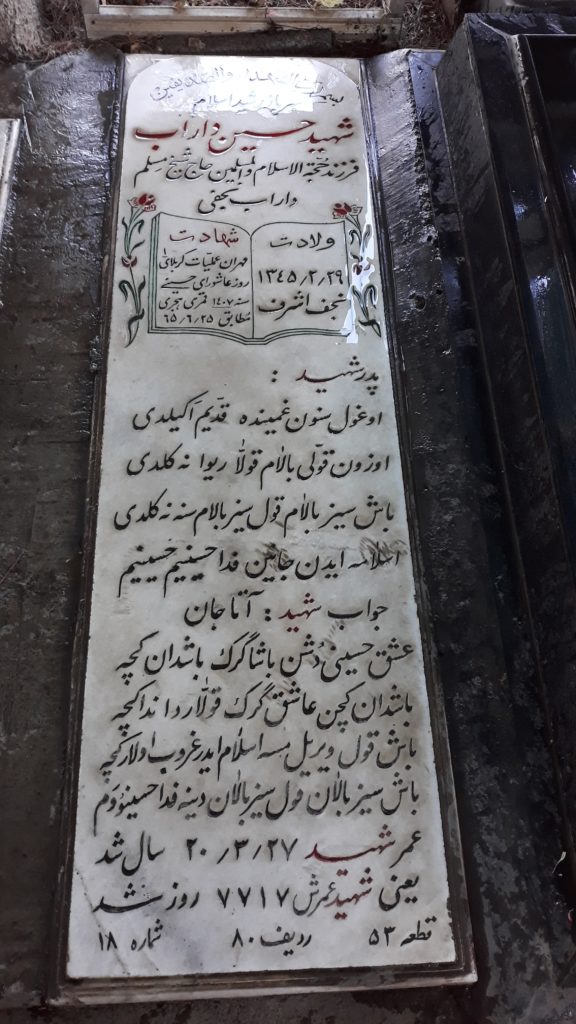 بسم رب الشهداء والصدیقین
سرباز رشید اسلام
شهید حسین داراب
فرزند حجة الاسلام والمسلمین حاج شیخ مسلم
داراب نجفی
ولادت
۱۳۴۵/۲/۲۹
نجف اشرف
شهادت
مهران عملیات کربلای ۱
روز عاشورای حسینی
سنه ۱۴۰۷ قمری هجری
مطابق ۶۵/۶/۲۵
پدر شهید :
اوغول سنون غمینده قدیم اکیلدی
اوزون قولی بالام قولاریوا نه کلدی
باش سیز بالام قول سیز بالام سنه نه کلدی
اسلامه ایدن جانین فدا حسینیم حسینیم
جواب شهید : آتا جان
عشق حسینی دُشن باشا گرک باشدان کچه
باشدان کچن عاشق گرک قولاردانداکچه
باش قول ویریل مسه اسلام ایدر غروب اولار کچه
باش سیز بالان قول سیز بالان دینه فدا حسینوم
عمر شهید ۲۰/۳/۲۷ سال شد
یعنی شهید عمرش ۷۷۱۷ روز شد
قطعه ۵۳ ردیف ۸۰ شماره ۱۸